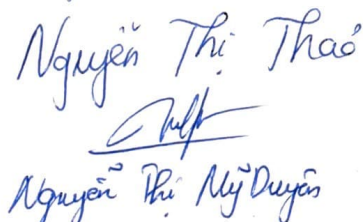 Nguyễn Thị Thảo
Nguyễn Thị Mỹ Duyên